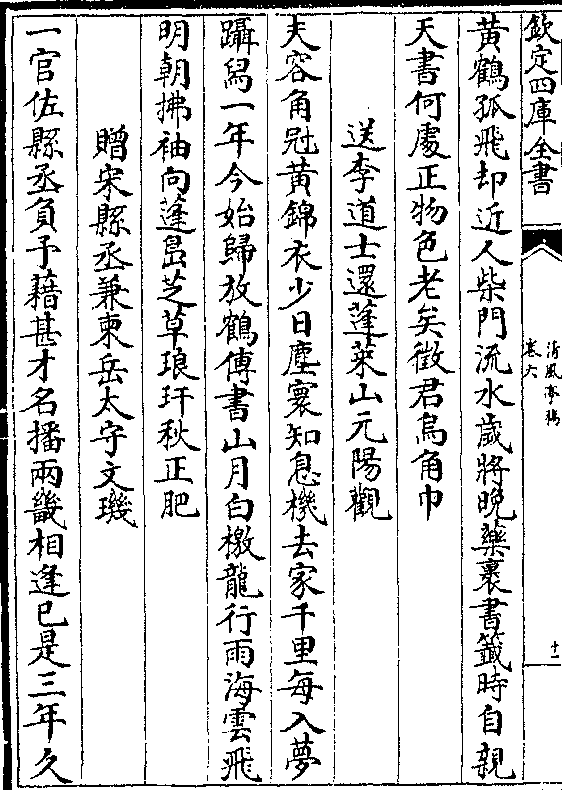 欽定四庫全書
清風亭稿
卷六
十一
黃鶴孤飛却近人柴門流水歲將晚藥裹書籤時自親
天書何處正物色老矣徵君烏角巾
送李道士還蓬萊山元陽觀
夫容角冠黃錦衣少日塵寰知息機去家千里每入夢
躡舄一年今始歸放鶴傳書山月白檄龍行雨海雲飛
明朝拂袖向蓬島芝草琅玕秋正肥
贈宋縣丞兼柬岳太守文璣
一官佐縣丞負予藉甚才名播兩畿相逢已是三年久